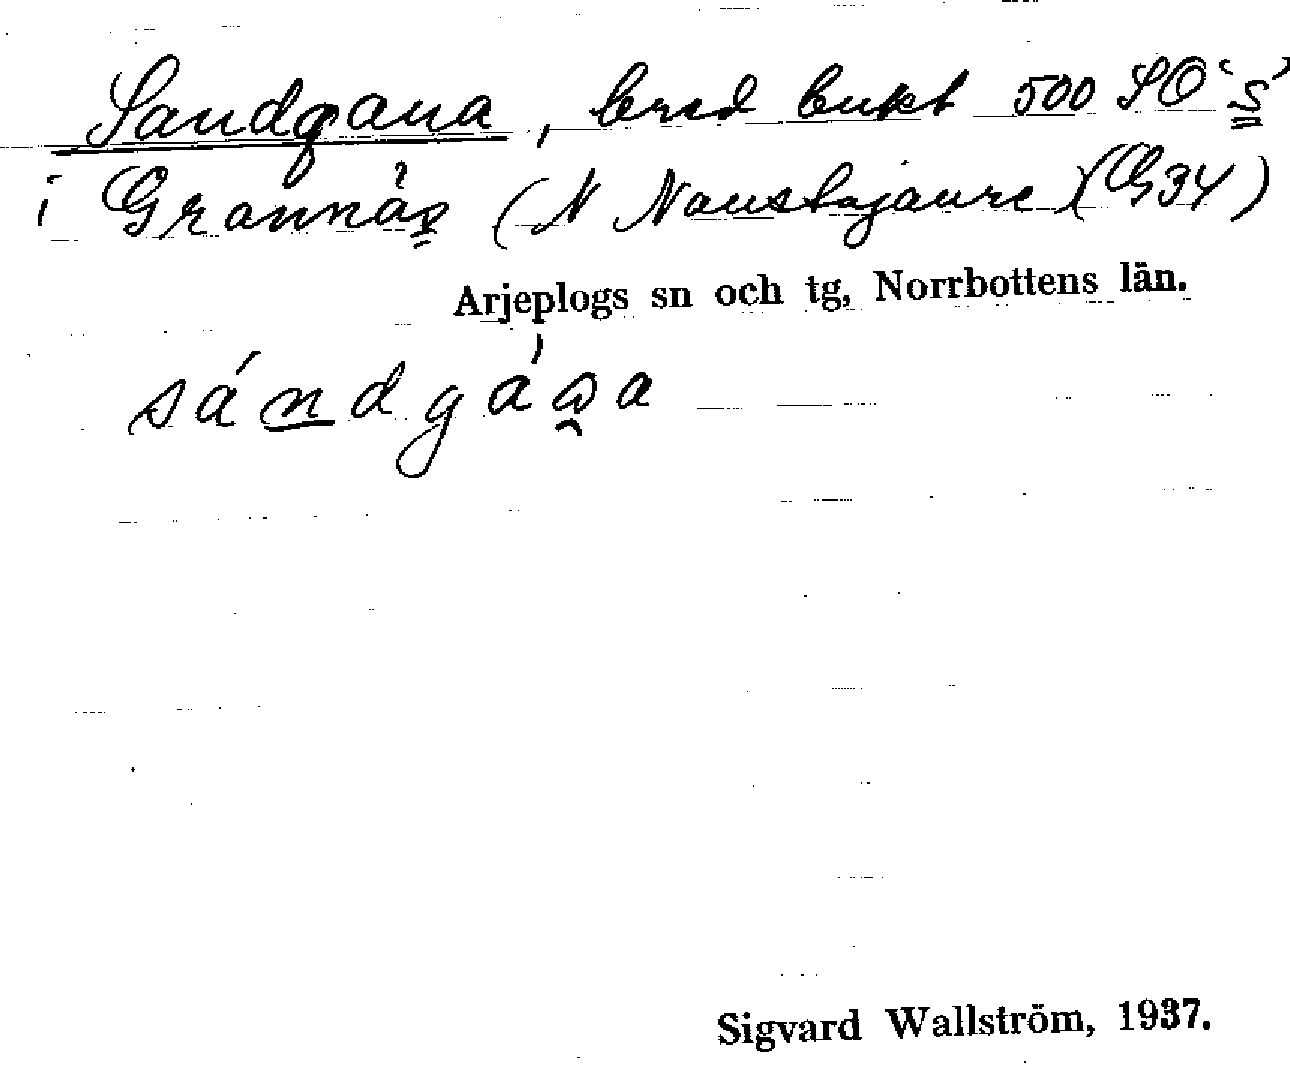 Sandgaua, bred bukt 500 SO 's'
i Grannäs (N Naustajaure) (G34)
Arjeplogs sn och tg, Norrbottens län.
Sigvard Wallström, 1937.